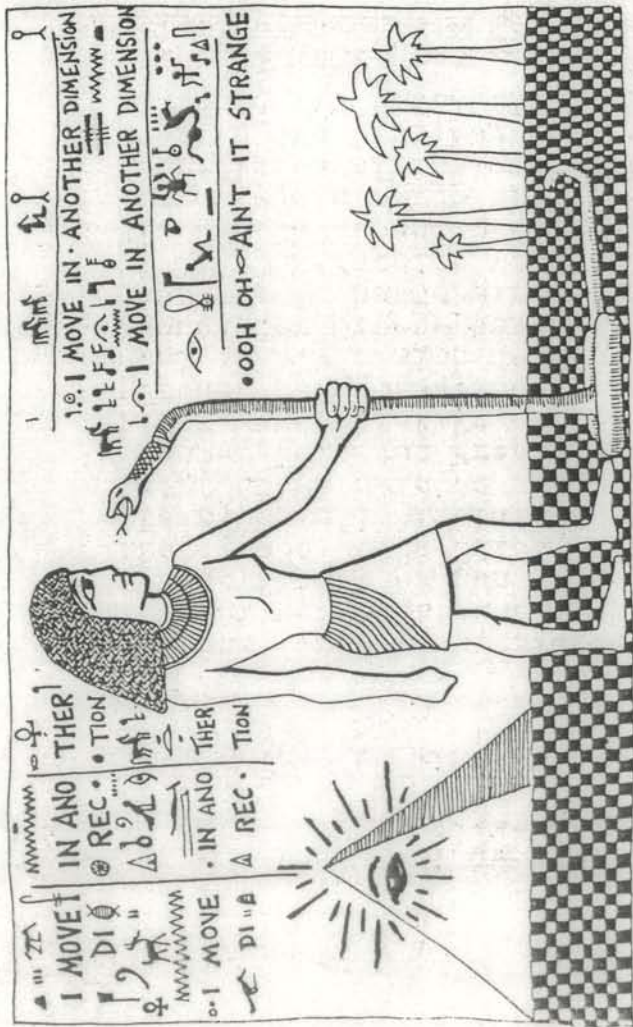 I MOVE IN ANO THER
DI REC · TION
I MOVE · IN ANO THER
DI REC · TION
I MOVE IN · ANOTHER DIMENSION
I MOVE IN ANOTHER DIMENSION
• OOH OH AIN'T IT STRANGE